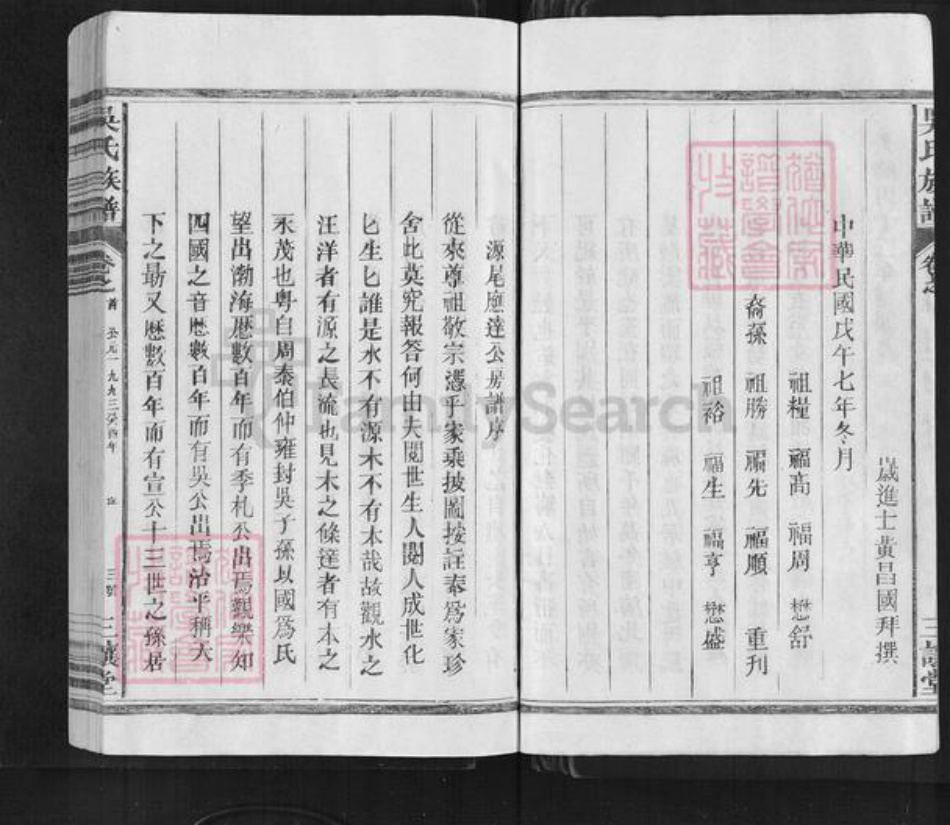 吳氏族譜
卷之
三讓堂
歲進士黄昌國拜撰
中華民國戊午七年冬月
祖糧 福高 福周 懋舒
裔孫 祖勝 福先 福順 重刋
祖裕 福生 福亨 懋盛
源尾應達公房譜序
從來尊祖敬宗憑乎家乘披圖按註奉爲家珍
舍此莫究報答何由夫閱世生人閱人成世化
匕生匕誰是水不有源木不有本哉故觀水之
汪洋者有源之長流也見木之條達者有本之
永茂也粤自周泰伯仲雍封吳子孫以國爲氏
望出渤海歷數百年而有季札公出焉觀樂知
四國之音歷數百年而有吳公出焉治平稱天
下之最又歷數百年而有宣公十三世之孫居
吳氏族譜
卷之
首
公元一九九三癸酉年
三讓堂
FamilySearch